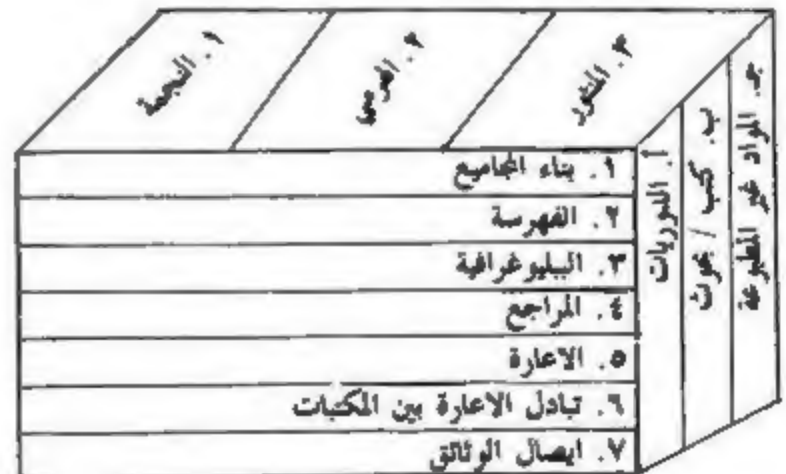 ٣. المنثور
٢. الهرمي
١. النجمة
١. بناء المجاميع
٢. الفهرسة
٣. الببليوغرافية
٤. المراجع
٥. الاعارة
٦. تبادل الاعارة بين المكتبات
٧. ايصال الوثائق
أ. الدوريات
ب. كتب / بحوث
جـ. المواد غير المطبوعة